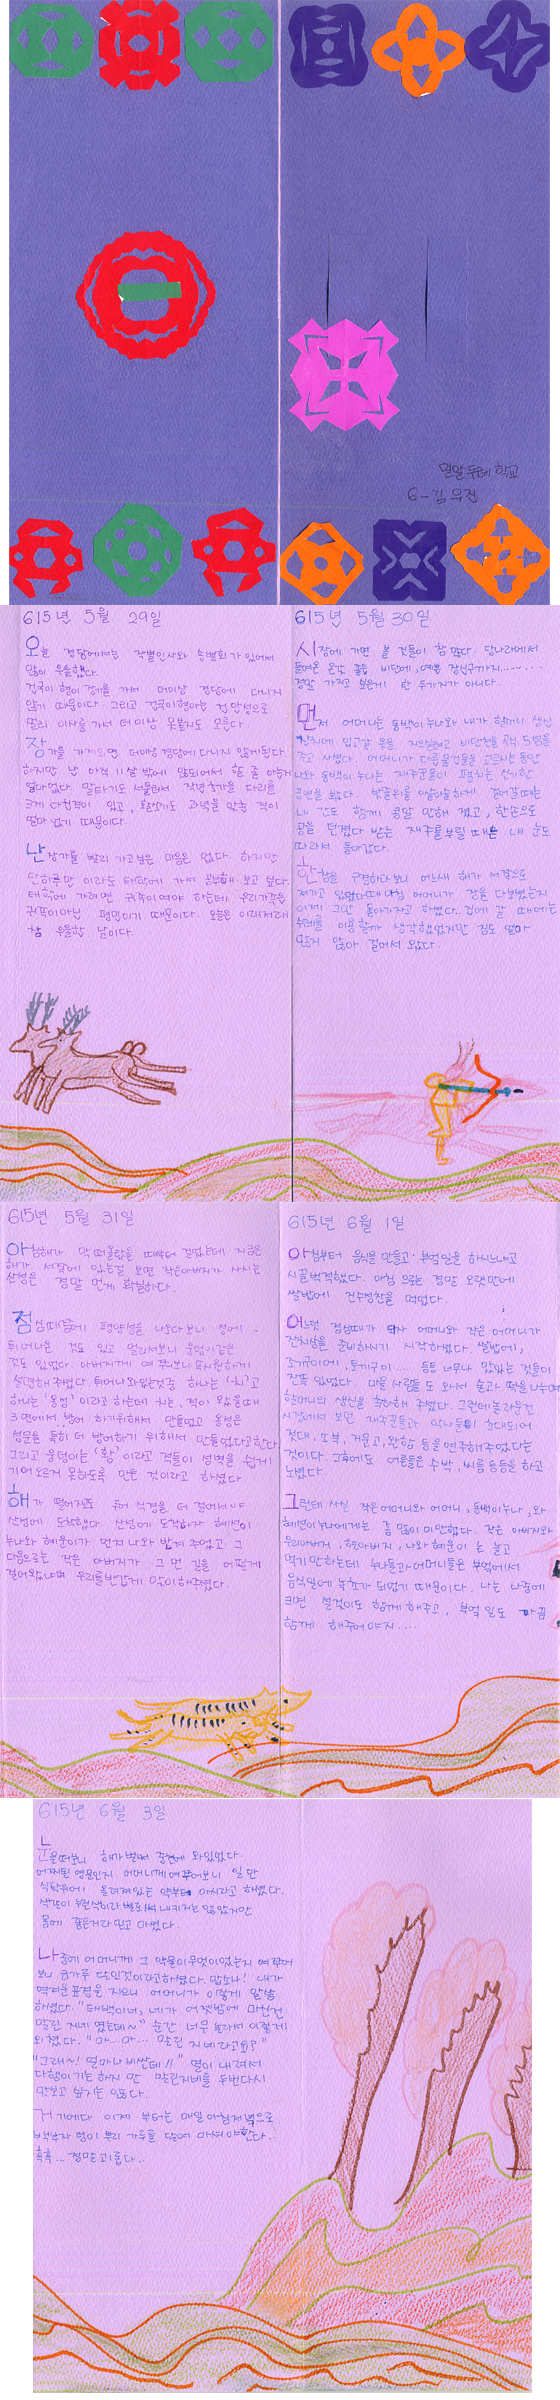 멋쟁 두레 학교
6-김우진
615년 5월 29일
오늘 경당에서는 작별인사와 송별회가 있어서
많이 우울했다.
걸국이 형이 장가를 가서 더이상 경당에 다니지
않기 때문이다. 그리고 걸국이형아는 건안성으로
멀리 이사를 가서 더이상 못볼지도 모른다.
장가를 가게되면 더이상 경당에 다니지 않게된다.
하지만 난 아직 11살 밖에 않되어서 할 줄 아는게
얼마없다. 말타기도 서툴러서 작년 가을 다리를
크게 다쳤적이 있고, 활쏘기도 과녁을 맞춘 적이
얼마 없기 때문이다.
난 장가를 빨리 가고싶은 마음은 없다. 하지만
단 하루만 이라도 태학에 가서 공부해 보고 싶다.
태학에 가려면 귀족이여야 하는데 우리가족은
귀족이아닌 평민이기 때문이다. 오늘은 이래저래
참 우울한 날이다.
615년 5월 30일
시장에 가면 볼 것들이 참 많다. 당나라에서
들여온 온갖 좋은 비단에, 예쁜 장신구까지.......
정말 가지고 싶은게 한 두가지가 아니다.
먼저 어머니는 동백이누나와 내가 할머니 생신
잔치에 입고갈 옷을 지으려고 비단천을 골라 5필을
주고 사셨다. 어머니가 다른물건들을 고르시는 동안
나와 동백이 누나는 재주꾼들이 펼치는 신기한
공연을 보았다. 밧줄위를 아슬아슬하게 걸어갈때는
내 간도 함께 콩알 만해 졌고, 한손으로
공을 던졌다 받는 재주를부릴 때는 내 눈도
따라서 돌아갔다.
한참을 구경하다보니 어느새 해가 서쪽으로
져가고 있었다. 때마침 어머니가 장을 다보셨는지
이제 그만 돌아가자고 하셨다. 집에 갈 때에는
수레를 이용할까 생각했었지만 짐도 얼마
많지 않아 걸어서 왔다.
615년 5월 31일
아침해가 막 떠올랐을 때부터 걸었는데 지금은
해가 서쪽에 있는걸 보면 작은아버지가 사시는
산성은 정말 먼게 확실하다.
점심때쯤에 평양성을 나오다 보니 성에
튀어나온 것도 있고 멀리서보니 웅덩이같은
것도 있었다. 아버지께 여쭈보니 또 시원하게
설명해 주셨다. 튀어나와있는것중 하나는 '치'라고
하나는 '옹성' 이라고 하는데 치는, 적이 왔을때
3면에서 방어 하기위해서 만들었고 옹성은
성문을 특히 더 방어하기 위해서 만들었다고한다.
그리고 웅덩이는 '황' 이라고 적들이 성벽을 쉽게
기어오르지 못하도록 만든 것이라고 하셨다.
해가 떨어지고도 두어 식경을 더 걸어서야
산성에 도착했다. 산성에 도착하자 혜선이
누나와 혜운이가 먼저 나와 반겨 주었고, 그
다음으로는 작은 아버지가 그 먼 길을 어떻게
걸어왔냐며 우리를 반갑게 맞이해주셨다.
615년 6월 1일
아침부터 음식을 만들고 부엌일을 하시느라고
시끌벅적했다. 아침 으로는 정말 오랫만에
쌀밥에 진수성찬을 먹었다.
어느덧 점심때가 되자 어머니와 작은 어머니가
잔치상을 준비하시기 시작하셨다. 쌀밥에,
조기구이에, 토끼구이 .... 등등 너무나 맛있는 것들이
잔뜩 있었다. 마을 사람들도 와서 술과 떡을 나누며
할머니의 생신을 축하해 주셨다. 그런데 놀라운건
시장에서 보던 재주꾼들과 악사들이 초대되어
젓대, 쪼부, 거문고, 완함 등을 연주해주었다는
것이다. 그후에도 어른들은 수박, 씨름 등등을 하고
노셨다.
그런데 사실 작은어머니와 어머니, 동백이누나, 와
혜선이누나에게는 좀 많이 미안했다. 작은 아버지와
우리아버지, 할아버지, 나와 혜운이 는 놀고
먹기만하는데 누나들과 어머니들은 부엌에서
음식일에 녹초가 되었기 때문이다. 나는 나중에
크면 설겆이도 함께 해주고, 부엌일도 가끔
함께 해주어야지....
615년 6월 3일
눈을떠보니 해가벌써 중천에 와있었다.
어찌된 영문인지 어머니께여쭈어보니 일단
식탁위에 올려져있는 약부터 마시라고 하셨다.
색깔이 누런색이라 별로써 내키지는 않았지만
몸에 좋은거라 믿고 마셨다.
나중에 어머니께 그 약물이무엇이었는지 여쭈어
보니 금가루 다린것이라고하셨다. 맙소사! 내가
역겨운 표정을 지으니 어머니가 이렇게 말씀
하셨다. "태백이네, 네가 어젯밤에 마신건
말린 지네 였는데~" 순간 너무 놀라서 이렇게
외쳤다. "마...마... 말린 지네라고요?"
"그래~! 얼마나 비싼데!!" 열이 내려서
다행이기는하지만 말린지네를 두번다시
맛보고 싶지는 않다.
거기에다 이제 부터는 매일 아침저녁으로
백부자 덩이 뿌리 가루를 달여 마셔야한다..
흑흑... 정말괴롭다..